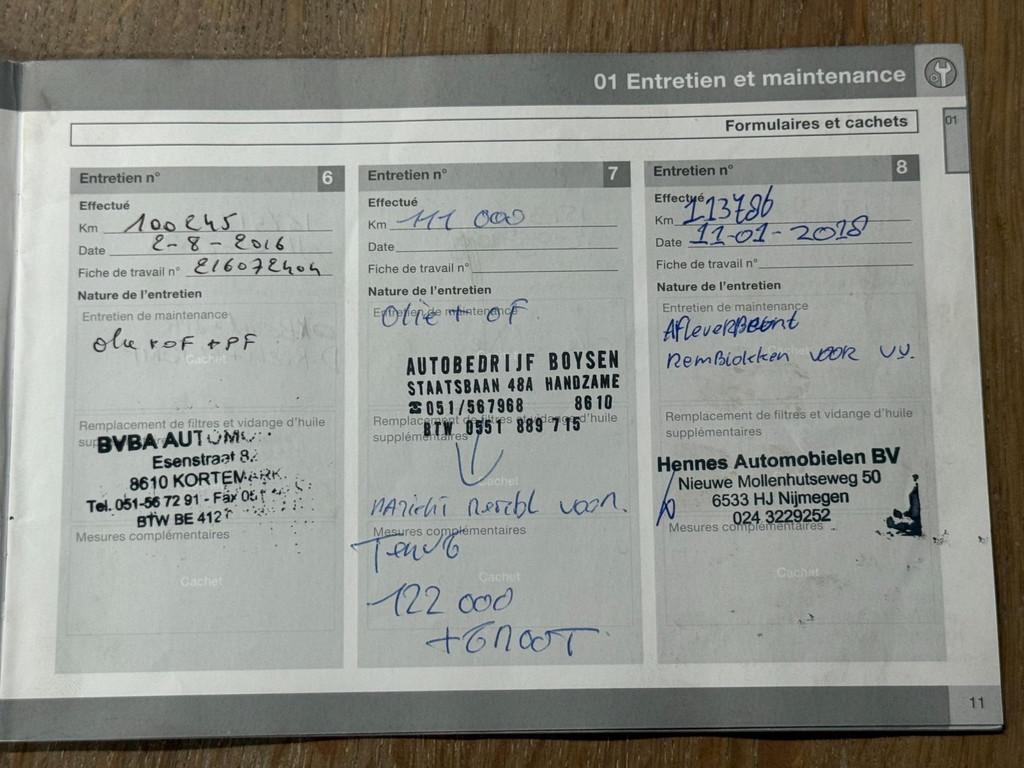 01 Entretien et maintenance
Formulaires et cachets
01
Entretien n° 6
Effectué
Km 100245
Date 2-8-2016
Fiche de travail n° 216072404
Nature de l'entretien
Entretien de maintenance
olie + OF + PF
Cachet
Remplacement de filtres et vidange d'huile
supplémentaires
BVBA AUTOMO
Esenstraat 8
8610 KORTEMARK
Tel. 051-56 72 91 - Fax 05
BTW BE 412
Mesures complémentaires
Cachet
Entretien n° 7
Effectué
Km 111 000
Date
Fiche de travail n°
Nature de l'entretien
Entretien de maintenance
olie + OF
AUTOBEDRIJF BOYSEN
STAATSBAAN 48A HANDZAME
☎051/567968 8610
Remplacement de filtres et vidange d'huile
BTW 0551 889 715
supplémentaires
Cachet
nazicht voor.
Mesures complémentaires
Terug
Cachet
122 000
+ GROOT
Entretien n° 8
Effectué
Km 113786
Date 11-01-2018
Fiche de travail n°
Nature de l'entretien
Entretien de maintenance
Afleverbeurt
Remblokken voor vv.
Cachet
Remplacement de filtres et vidange d'huile
supplémentaires
Hennes Automobielen BV
Nieuwe Mollenhutseweg 50
6533 HJ Nijmegen
024 3229252
Mesures complémentaires
Cachet
11